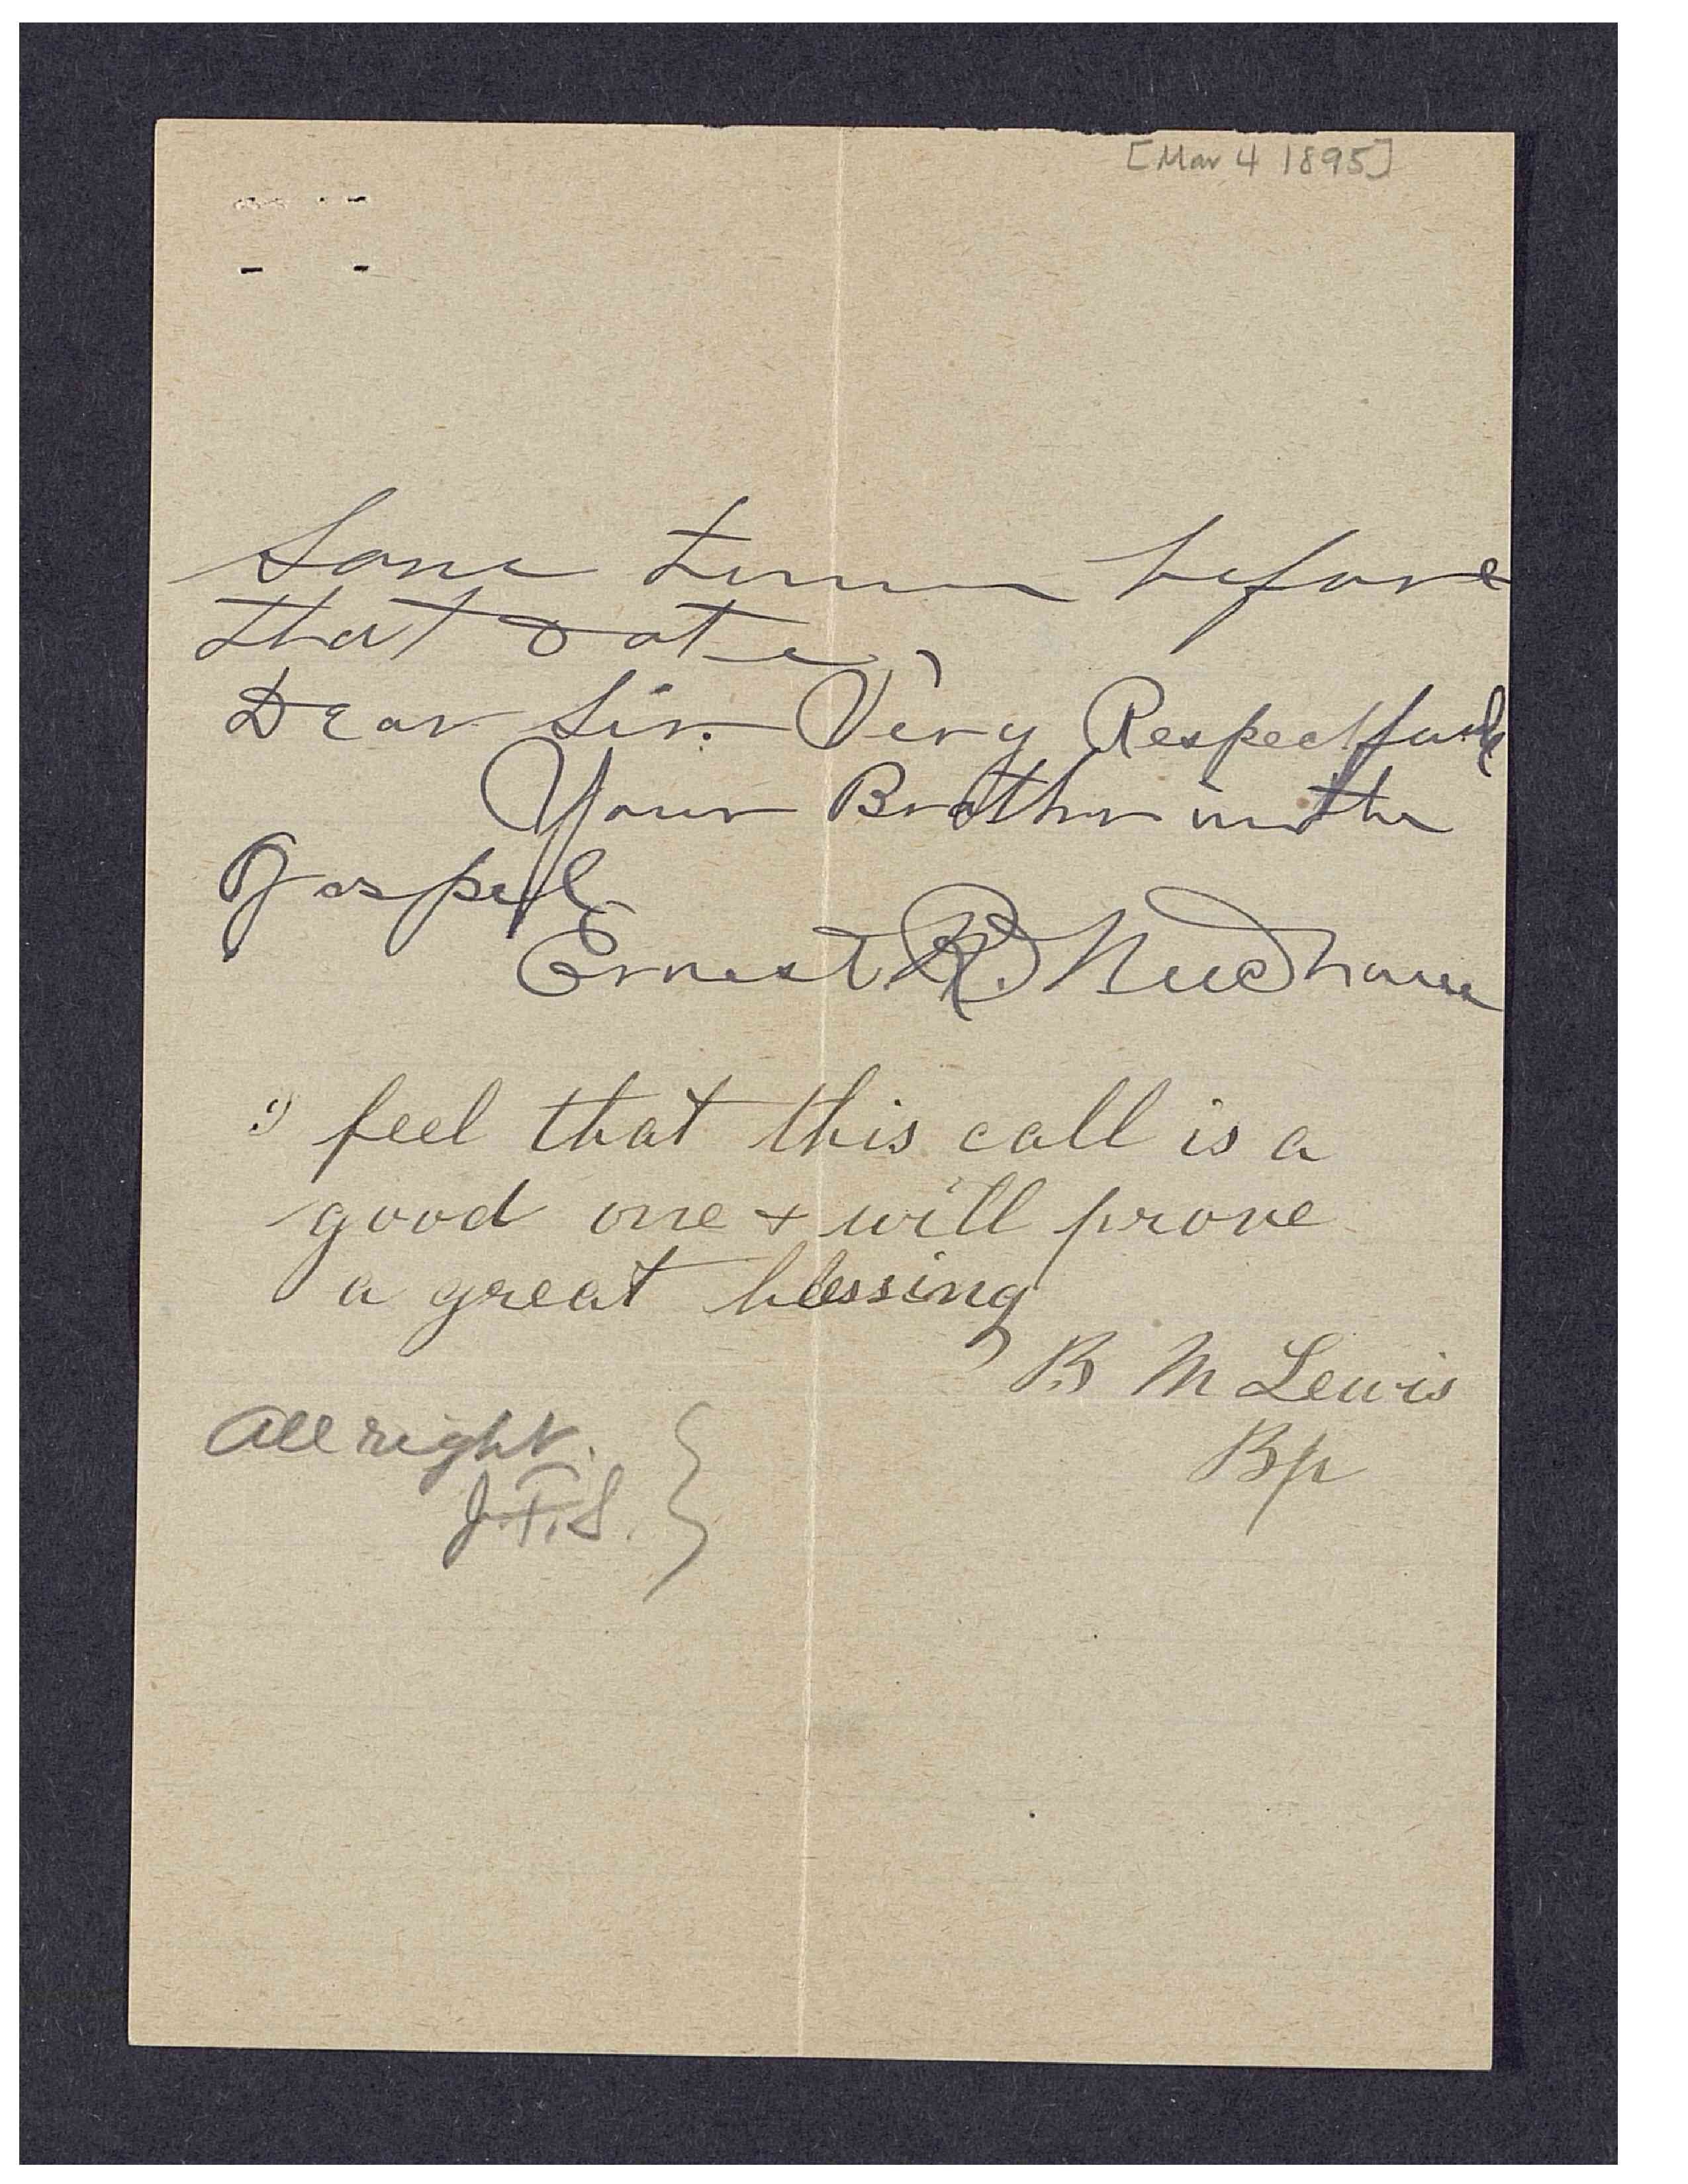 [Mar 4 1895]
Some time before
that date,
Dear Sir. Very Respectfully
Your Brother in the
Gospel
Ernest R.
I feel that this call is a
good one + will prove
a great blessing
B M Lewis
Bp
All right.
J.F.S.